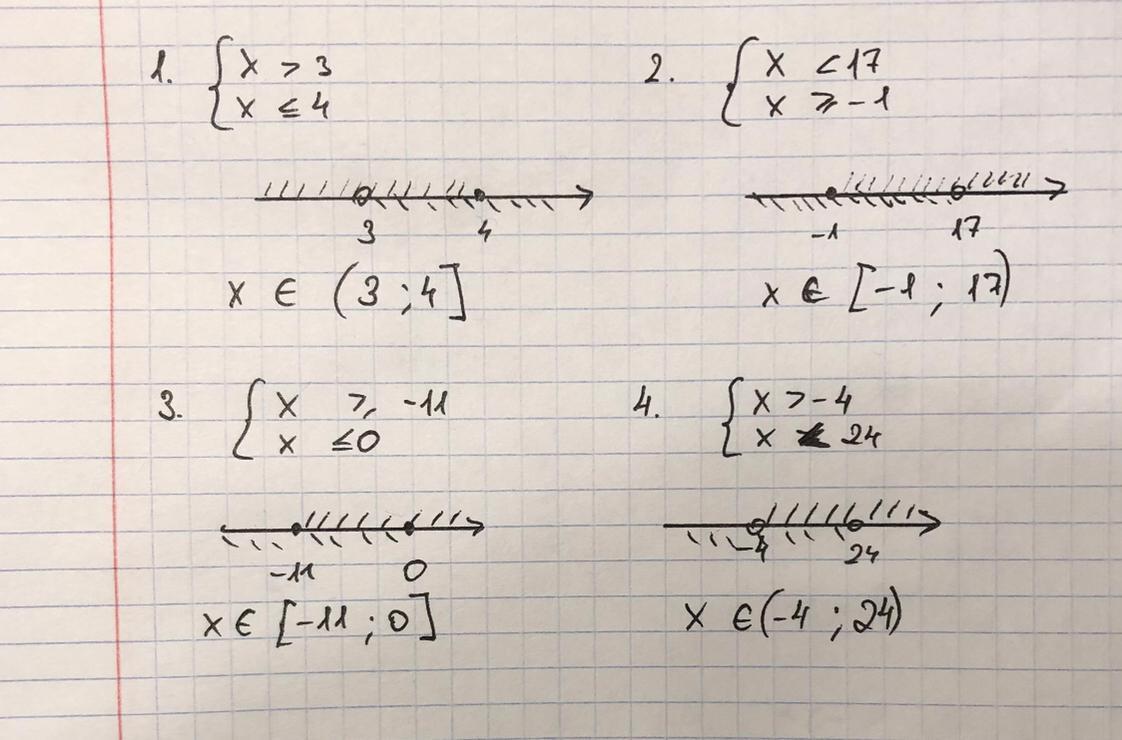 1. { x > 3
x ≤ 4
3 4
x ∈ (3 ; 4]
2. { x < 17
x ≥ -1
-1 17
x ∈ [-1 ; 17)
3. { x ≥ -11
x ≤ 0
-11 0
x ∈ [-11 ; 0]
4. { x > -4
x < 24
-4 24
x ∈ (-4 ; 24)